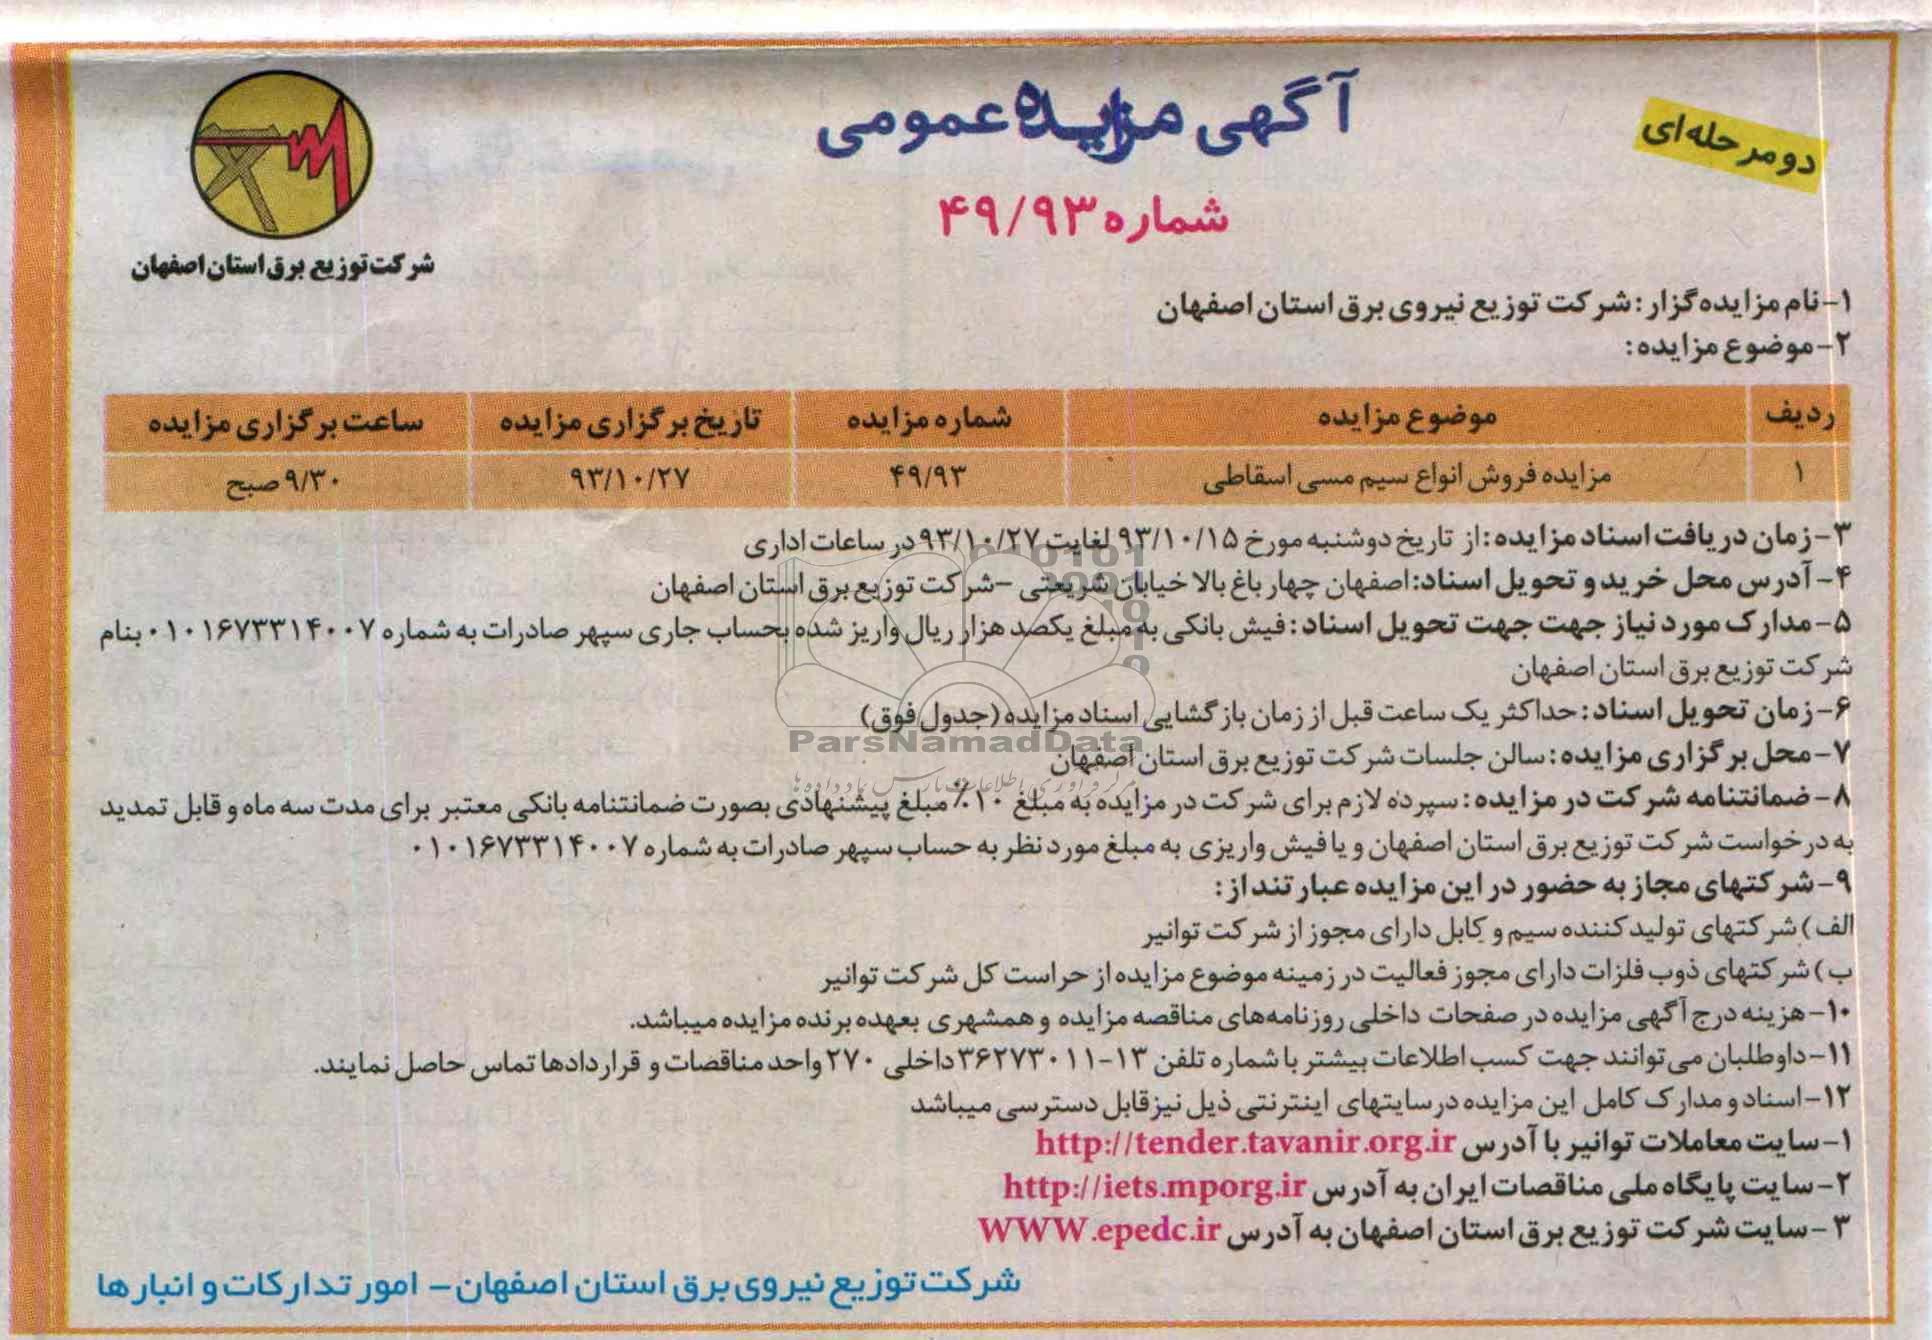 دو مرحله‌ای
آگهی مزایده عمومی
شماره ۴۹/۹۳
شرکت توزیع برق استان اصفهان
۱- نام مزایده گزار: شرکت توزیع نیروی برق استان اصفهان
۲- موضوع مزایده:
ردیف موضوع مزایده شماره مزایده تاریخ برگزاری مزایده ساعت برگزاری مزایده
۱ مزایده فروش انواع سیم مسی اسقاطی ۴۹/۹۳ ۹۳/۱۰/۲۷ ۹/۳۰ صبح
۳- زمان دریافت اسناد مزایده: از تاریخ دوشنبه مورخ ۹۳/۱۰/۱۵ لغایت ۹۳/۱۰/۲۷ در ساعات اداری
۴- آدرس محل خرید و تحویل اسناد: اصفهان چهار باغ بالا خیابان شریعتی – شرکت توزیع برق استان اصفهان
۵- مدارک مورد نیاز جهت جهت تحویل اسناد: فیش بانکی به مبلغ یکصد هزار ریال واریز شده بحساب جاری سپهر صادرات به شماره ۰۱۰۱۶۷۳۳۱۴۰۰۷ بنام
شرکت توزیع برق استان اصفهان
۶- زمان تحویل اسناد: حداکثر یک ساعت قبل از زمان بازگشایی اسناد مزایده (جدول فوق)
ParsNamadData
۷- محل برگزاری مزایده: سالن جلسات شرکت توزیع برق استان اصفهان
مرکز فرآوری اطلاعات پارس نماد داده‌ها
۸- ضمانتنامه شرکت در مزایده: سپرده لازم برای شرکت در مزایده به مبلغ ۱۰٪ مبلغ پیشنهادی بصورت ضمانتنامه بانکی معتبر برای مدت سه ماه و قابل تمدید
به درخواست شرکت توزیع برق استان اصفهان و یا فیش واریزی به مبلغ مورد نظر به حساب سپهر صادرات به شماره ۰۱۰۱۶۷۳۳۱۴۰۰۷
۹- شرکتهای مجاز به حضور در این مزایده عبارتند از:
الف) شرکتهای تولید کننده سیم و کابل دارای مجوز از شرکت توانیر
ب) شرکتهای ذوب فلزات دارای مجوز فعالیت در زمینه موضوع مزایده از حراست کل شرکت توانیر
۱۰- هزینه درج آگهی مزایده در صفحات داخلی روزنامه‌های مناقصه مزایده و همشهری بعهده برنده مزایده میباشد.
۱۱- داوطلبان می‌توانند جهت کسب اطلاعات بیشتر با شماره تلفن ۱۳-۳۶۲۷۳۰۱۱ داخلی ۲۷۰ واحد مناقصات و قراردادها تماس حاصل نمایند.
۱۲- اسناد و مدارک کامل این مزایده در سایتهای اینترنتی ذیل نیز قابل دسترسی میباشد
۱- سایت معاملات توانیر با آدرس http://tender.tavanir.org.ir
۲- سایت پایگاه ملی مناقصات ایران به آدرس http://iets.mporg.ir
۳- سایت شرکت توزیع برق استان اصفهان به آدرس WWW.epedc.ir
شرکت توزیع نیروی برق استان اصفهان – امور تدارکات و انبارها